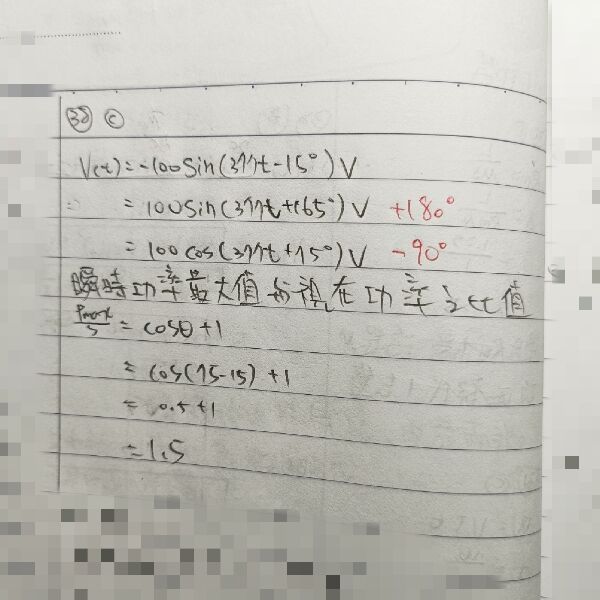 38 C
V(t)=-100Sin(377t-15°)V
=100sin(377t+165°)V +180°
=100cos(377t+75°)V -90°
瞬時功率最大值与視在功率之比值
Pmax/S = cosθ+1
= cos(75-15)+1
= 0.5+1
=1.5